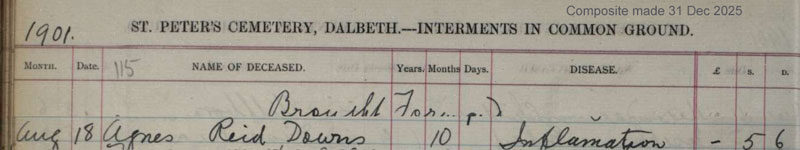 Composite made 31 Dec 2025
1901. ST. PETER'S CEMETERY, DALBETH.—INTERMENTS IN COMMON GROUND.
MONTH. Date. 115 NAME OF DECEASED. Years. Months Days. DISEASE. £ S. D.
Brought
Aug 18 Agnes Reid Downs 10 Inflamation – 5 6